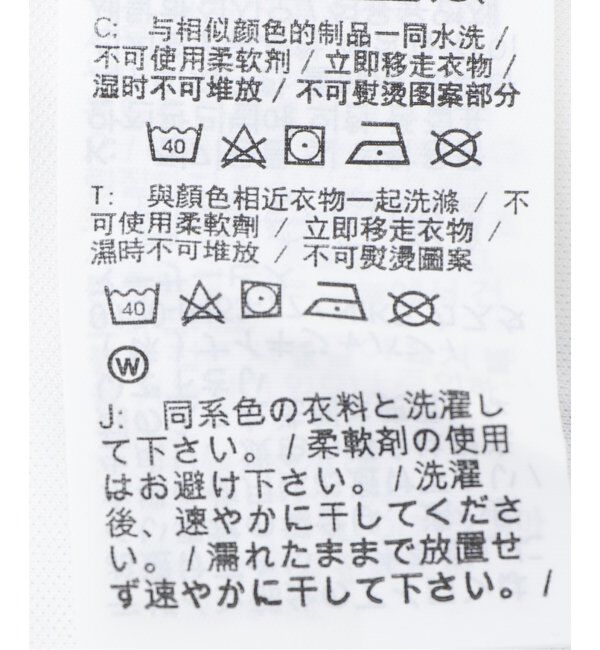 C: 与相似颜色的制品一同水洗 /
不可使用柔软剂 / 立即移走衣物 /
湿时不可堆放 / 不可熨烫图案部分
40
T: 與顏色相近衣物一起洗滌 / 不
可使用柔軟劑 / 立即移走衣物 /
濕時不可堆放 / 不可熨燙圖案
40
W
J: 同系色の衣料と洗濯し
て下さい。/ 柔軟剤の使用
はお避け下さい。/ 洗濯
後、速やかに干してくださ
い。/ 濡れたままで放置せ
ず速やかに干して下さい。/